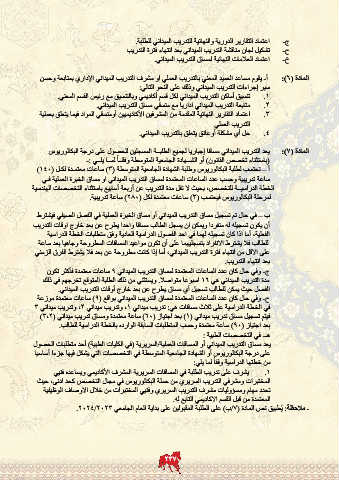 اعتماد التقارير الدورية والنهائية للتدريب الميداني للطلبة.
تشكيل لجان مناقشة التدريب الميداني بعد انتهاء فترة التدريب
اعتماد العلامات النهائية لمساق التدريب الميداني.
المادة (٦): أ- يقوم مساعد العميد المعني بالتدريب العملي او مشرف التدريب الميداني الإداري بمتابعة وحسن
سير إجراءات التدريب الميداني وذلك على النحو التالي:
١. تنسيق أماكن التدريب الميداني لكل قسم أكاديمي وبالتنسيق مع رئيس القسم المعني.
٢. متابعة التدريب الميداني اداريا مع منسقي مساق التدريب الميداني.
٣. اعتماد التقارير النهائية المقدمة من المشرفين الأكاديميين ومنسقي المواد فيما يتعلق بعملية
التدريب العملي.
٤. حل أي مشكلة أو عائق يتعلق بالتدريب الميداني.
المادة (٧): يعد التدريب الميداني مساقا إجباريا لجميع الطلبة المسجلين للحصول على درجة البكالوريوس
(باستثناء تخصص القانون) أو الشهادة الجامعية المتوسطة وفقا لما يلي:
أ- تحتسب لطلبة البكالوريوس وطلبة الشهادة الجامعية المتوسطة (٣) ساعات معتمدة لكل (١٤٠)
ساعة تدريبية وحسب عدد الساعات المعتمدة لمساق التدريب الميداني أو مساق الخبرة العملية في
الخطة الدراسية للتخصص، بحيث لا تقل مدة التدريب عن أربعة أسابيع باستثناء التخصصات الهندسية
لمرحلة البكالوريوس فيحتسب (٣) ساعات معتمدة لكل (٢٨٠) ساعة تدريبية.
ب- في حال تم تسجيل مساق التدريب الميداني أو مساق الخبرة العملية في الفصل الصيفي فيشترط
أن يكون تسجيله له منفردا ويمكن ان يسجل الطالب مساقا واحدا يطرح عن بعد خارج أوقات التدريب
الفعلية، أما اذا كان تسجيله لهما في احد الفصول الدراسية العادية وفق متطلبات الخطة الدراسية
للطالب فلا يشترط الانفراد بتسجيلهما على أن تكون مواعيد المساقات المطروحة وجاهيا بعد ساعة
على الأقل من انتهاء فترة التدريب الميداني، أما إذا كانت مطروحة عن بعد فلا يشترط الفرق الزمني
بعد انتهاء التدريب.
ج- وفي حال كان عدد الساعات المعتمدة لمساق التدريب الميداني ٩ ساعات معتمدة فأكثر تكون
مدة التدريب الميداني هي ١٦ أسبوعا متواصلا، ويستثنى من ذلك الطلبة المتوقع تخرجهم في ذلك
الفصل حيث يمكن للطالب تسجيل أي مساق يطرح عن بعد خارج أوقات التدريب الميداني.
ح- وفي حال كان عدد الساعات المعتمدة لمساق التدريب الميداني بواقع (٩) ساعات معتمدة موزعة
في الخطة الدراسية على ثلاث مساقات هي: تدريب ميداني ١، وتدريب ميداني ٢، وتدريب ميداني ٣
فيتم تسجيل مساق تدريب ميداني (١) بعد اجتياز (٦٠) ساعة معتمدة ومساق تدريب ميداني (٢،٣)
بعد اجتياز (٩٠) ساعة معتمدة وحسب المتطلبات السابقة الواردة بالخطة الدراسية للطالب.
هـ- في التخصصات الطبية:
يعد مساق التدريب الميداني أو المساقات العملية/السريرية (في الكليات الطبية) أحد متطلبات الحصول
على درجة البكالوريوس أو الشهادة الجامعية المتوسطة في التخصصات التي يشكل فيها جزءا أساسيا
من خطتها الدراسية وفقا لما يلي:
١. يشرف على تدريب الطلبة في المساقات السريرية المشرف الأكاديمي ويساعده فنيي
المختبرات ومشرفي التدريب السريري من حملة البكالوريوس في مجال التخصص كحد أدنى، حيث
تحدد مهام ومسؤوليات مشرف التدريب السريري وفنيي المختبرات من خلال الأوصاف الوظيفية
المعتمدة من قبل القسم الأكاديمي التابع له.
ـ ملاحظة: يُطبق نص المادة (٧/ب) على الطلبة المقبولين على بداية العام الجامعي ٢٠٢٤/٢٠٢٣.